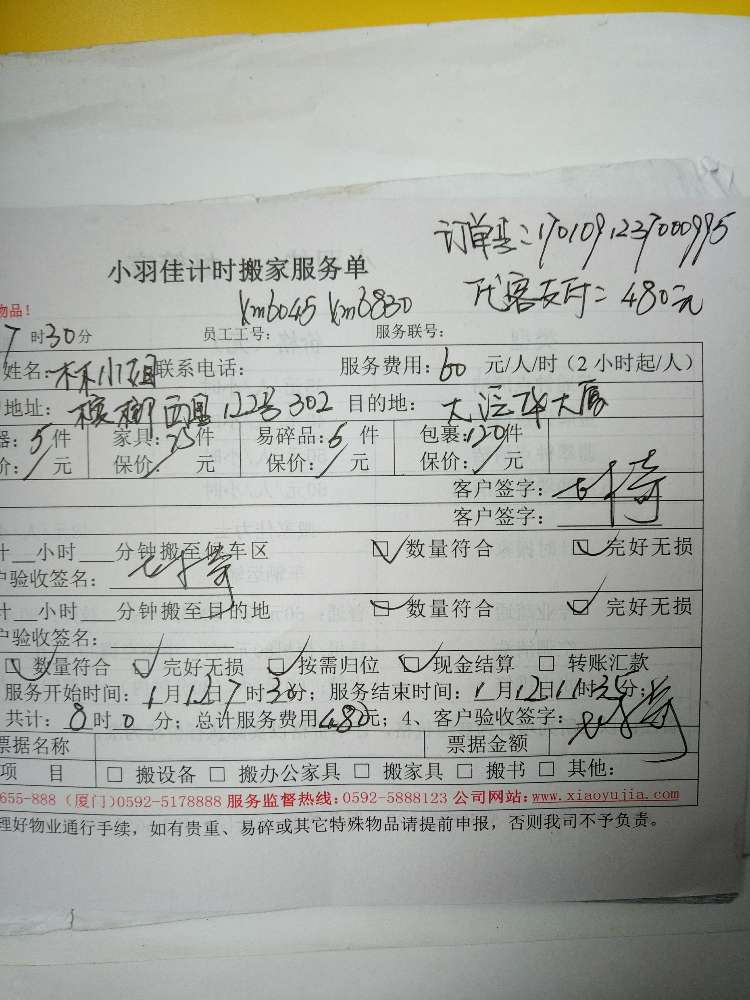 订单号:1701091237000995
小羽佳计时搬家服务单
代客支付:480元
物品!
xm6045 xm6830
7时30分 员工工号: 服务联号:
姓名:林小姐 联系电话: 服务费用:60元/人/时(2小时起/人)
地址:122号302 目的地:大厦
器:5件 家具:25件 易碎品:5件 包裹:120件
价: 元 保价: 元 保价: 元 保价: 元
客户签字:
客户签字:
计__小时__分钟搬至停车区 ☑数量符合 ☑完好无损
户验收签名:
计__小时__分钟搬至目的地 ☑数量符合 ☑完好无损
户验收签名:
☑数量符合 ☑完好无损 ☑按需归位 ☑现金结算 □转账汇款
服务开始时间:1月12日7时30分;服务结束时间:1月12日11时35分;
共计:8时0分;总计服务费用480元;4、客户验收签字:
票据名称 票据金额
项目 □搬设备 □搬办公家具 □搬家具 □搬书 □其他:
655-888(厦门)0592-5178888 服务监督热线:0592-5888123 公司网站:www.xiaoyujia.com
理好物业通行手续,如有贵重、易碎或其它特殊物品请提前申报,否则我司不予负责。